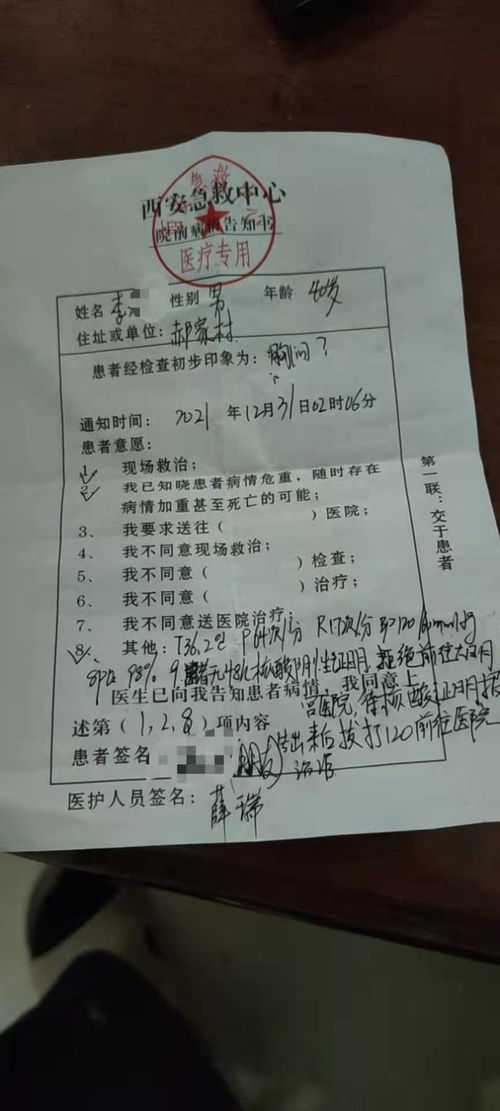 西安急救中心
院前病情告知书
医疗专用
姓名 李 性别 男 年龄 40岁
住址或单位: 郝家村
患者经检查初步印象为: 胸闷?
通知时间: 2021 年12月31日02时06分
患者意愿:
1、 现场救治;
2、 我已知晓患者病情危重,随时存在
病情加重甚至死亡的可能;
3、 我要求送往( )医院;
4、 我不同意现场救治;
5、 我不同意( )检查;
6、 我不同意( )治疗;
7、 我不同意送医院治疗;
8、 其他: T36.2℃ P64次/分 R17次/分 BP120/ mmHg
SPO2 98% 患者无48h核酸阴性证明 拒绝前往大明
宫医院,待核酸证明报
告出来后拨打120前往医院
治疗
医生已向我告知患者病情,我同意上
述第(1,2,8)项内容
患者签名
医护人员签名: 薛瑞
第一联:交于患者